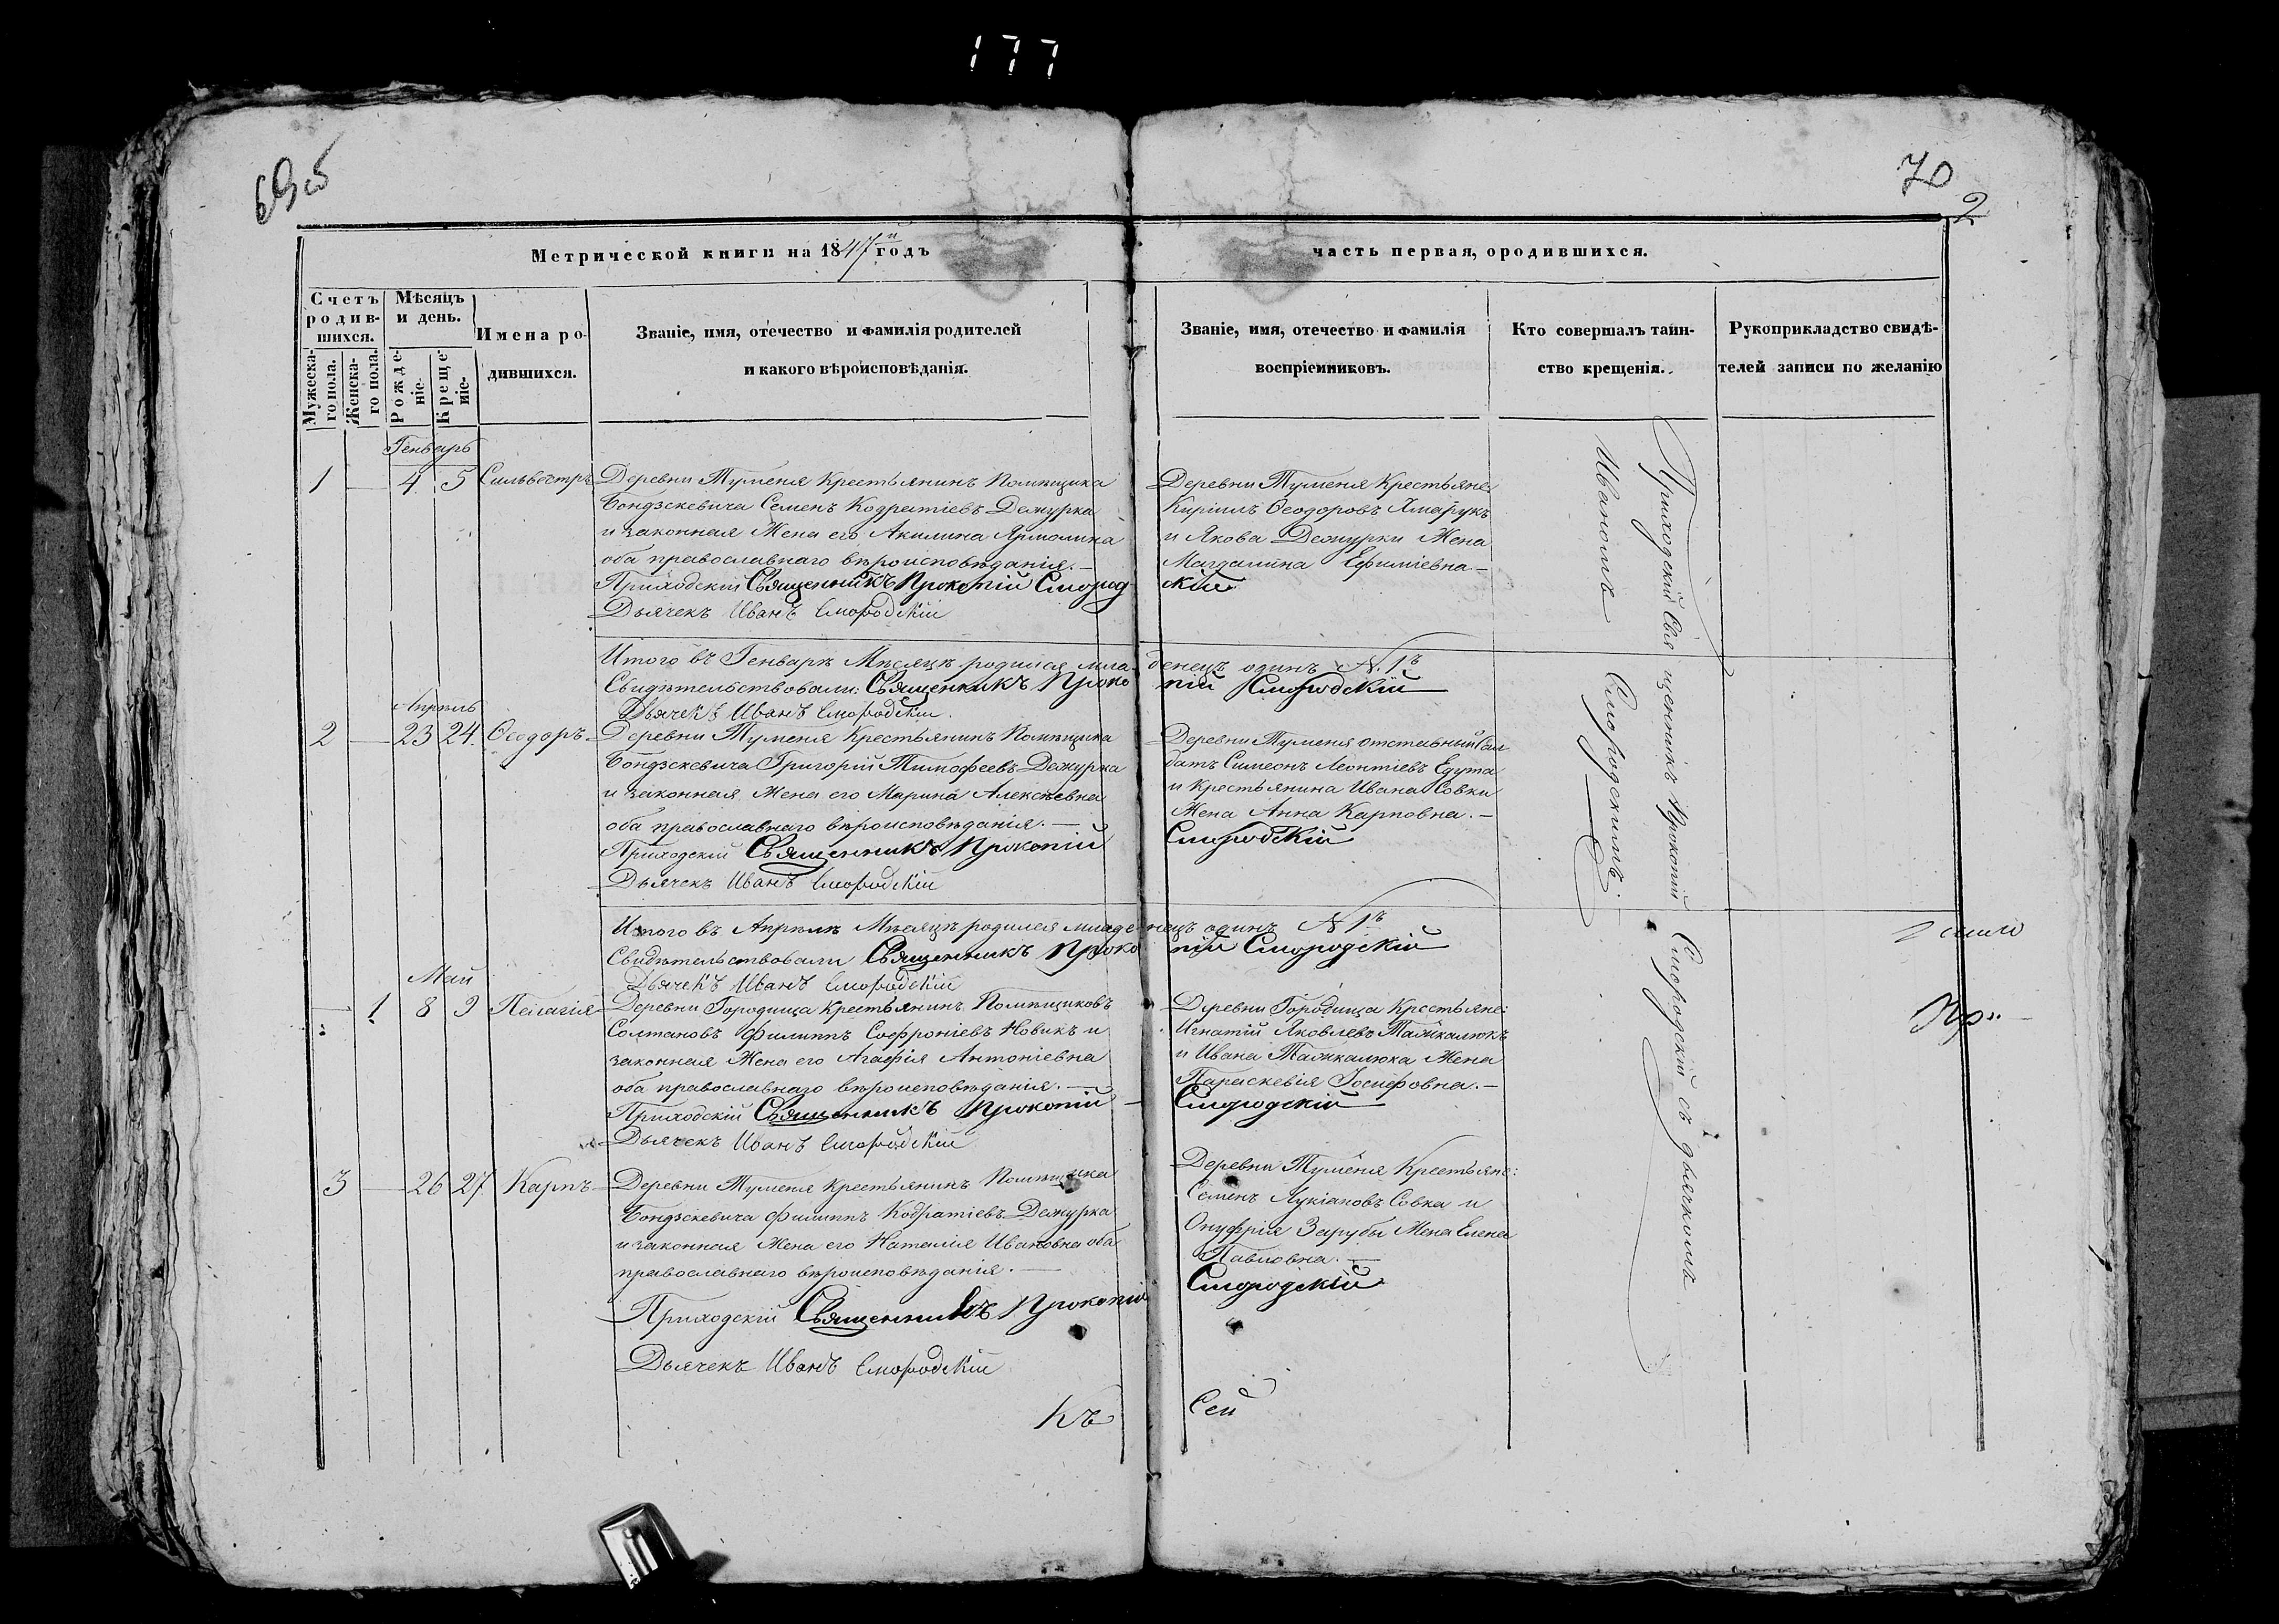 177
69об
70
2
Метрической книги на 1847й годъ
часть первая, ородившихся.
Счетъ родив-шихся.
Мужеска-го пола.
Женска-го пола.
Мѣсяцъ и день.
Рожде-ніе.
Креще-ніе.
Имена ро-
дившихся.
Званіе, имя, отечество и фамилія родителей
и какого вѣроисповѣданія.
Званіе, имя, отечество и фамилія
воспріемниковъ.
Кто совершалъ таин-
ство крещенія.
Рукоприкладство свидѣ-
телей записи по желанію
Генварь
1 — 4 5 Сильвестръ
Деревни Туменя Крестьянинъ Помѣщика
Бондзскевича Семенъ Кодратіевъ Демурка
и законная Жена его Акилина Ярмолина
оба православнаго вѣроисповѣданія. —
Приходскій Священникъ Прокопій Смород
скій
Дьячекъ Иванъ Смородскій
Деревни Туменя Крестьяне:
Кириллъ Ѳеодоровъ Хмарукъ
и Якова Демурки Жена
Магдалина Ефиміевна —
Итого въ Генварѣ Мѣсяцѣ родился мла
денецъ одинъ N. 1ъ
Свидѣтельствовали: Священникъ Проко
пій Смородскій
Дьячекъ Иванъ Смородскій.
Апрѣль
2 — 23 24 Ѳеодоръ
Деревни Туменя Крестьянинъ Помѣщика
Бондзскевича Григорій Тимофеевъ Демурка
и законная Жена его Марина Алексѣевна
оба православнаго вѣроисповѣданія. —
Приходскій Священникъ Прокопій
Смородскій
Дьячекъ Иванъ Смородскій
Деревни Туменя отставный Сол
датъ Симеонъ Леонтіевъ Едута
и Крестьянина Ивана Совки
Жена Анна Карповна. —
Итого въ Апрѣлѣ Мѣсяцѣ родился младе
нецъ одинъ N 1ъ
Свидѣтельствовали Священникъ Проко
пій Смородскій
Дьячекъ Иванъ Смородскій
Май
— 1 8 9 Пелагія
Деревни Городища Крестьянинъ Помѣщиковъ
Солтановъ Филиппъ Софроніевъ Новикъ и
законная Жена его Агафія Антоніевна
оба православнаго вѣроисповѣданія. —
Приходскій Священникъ Прокопій
Смородскій
Дьячекъ Иванъ Смородскій
Деревни Городища Крестьяне:
Игнатій Яковлевъ
и Ивана Жена
Параскевія Іосифовна. —
3 — 26 27 Карпъ
Деревни Туменя Крестьянинъ Помѣщика
Бондзскевича Филиппъ Кодратіевъ Демурка
и законная Жена его Наталія Ивановна оба
православнаго вѣроисповѣданія. —
Приходскій Священникъ Прокопій
Смородскій
Дьячекъ Иванъ Смородскій
Деревни Туменя Крестьяне:
Семенъ Лукіановъ Совка и
Онуфрія Зарубы Жена Елена
Павловна. —
Къ
Сей
Приходскій Священникъ Прокопій Смородскій съ дьячкомъ
Иваномъ Смородскимъ.